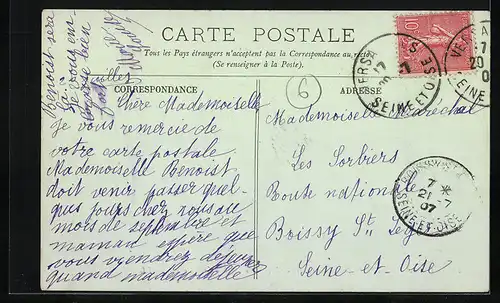 CARTE POSTALE
Tous les Pays étrangers n'acceptent pas la Correspondance au recto
(Se renseigner à la Poste).
CORRESPONDANCE
ADRESSE
Chère Mademoiselle
Je vous remercie de
votre carte postale
Mademoiselle Benoist
doit venir passer quel-
ques jours chez nous au
mois de septembre et
maman espère que
vous viendrez déjeuner
quand mademoiselle
Benoist sera
Je vous em-
brasse bien
fort
6
Mademoiselle Maréchal
Les Sorbiers
Route nationale
Boissy St Leger
Seine-et-Oise
10
SEINE ET OISE
17
20
7 *
21 -7
07
SEINE-ET-OISE